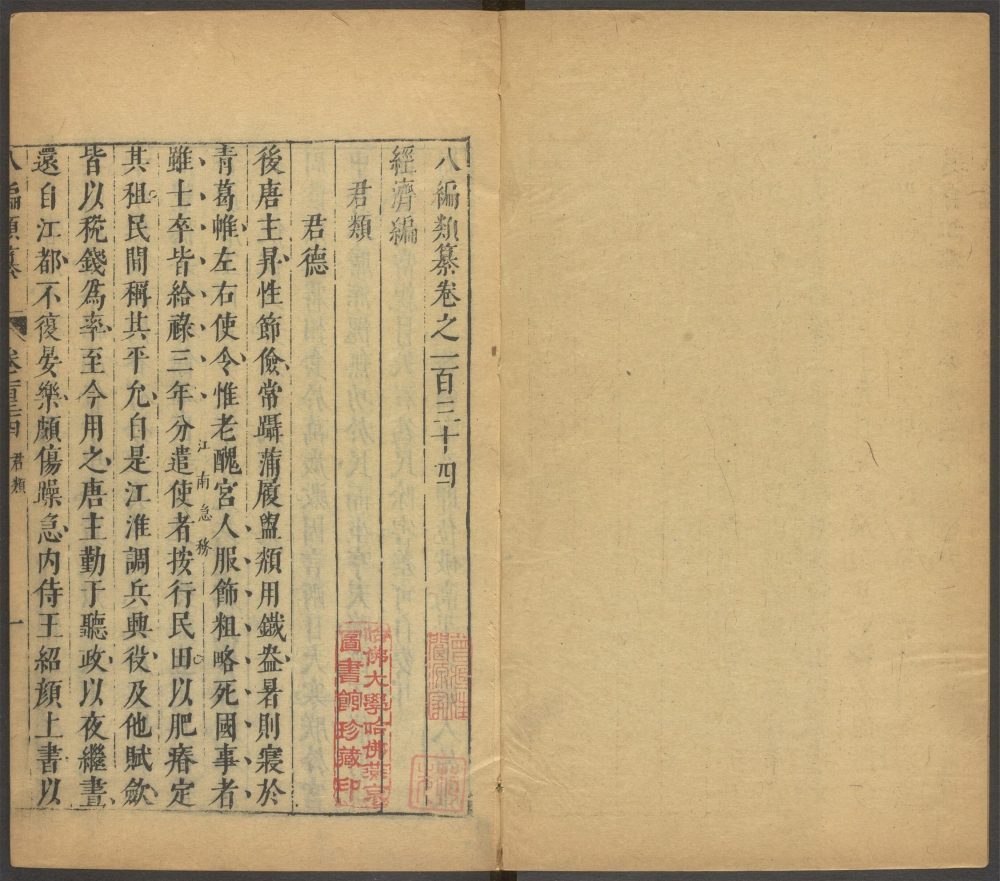 八編類纂卷之一百三十四
經濟編
君類
君德
後唐主昪性節儉常躡蒲履盥頮用鐵盎暑則寢於
青葛帷左右使令惟老醜宮人服飾粗略死國事者
雖士卒皆給祿三年分遣使者按行民田以肥瘠定
江南急務
其租民間稱其平允自是江淮調兵興役及他賦歛
皆以稅錢為率至今用之唐主勤于聽政以夜繼晝
還自江都不復宴樂頗傷躁急內侍王紹顏上書以
八編類纂
卷一百三十四
君類
一
哈佛大學哈佛燕京
圖書館珍藏印